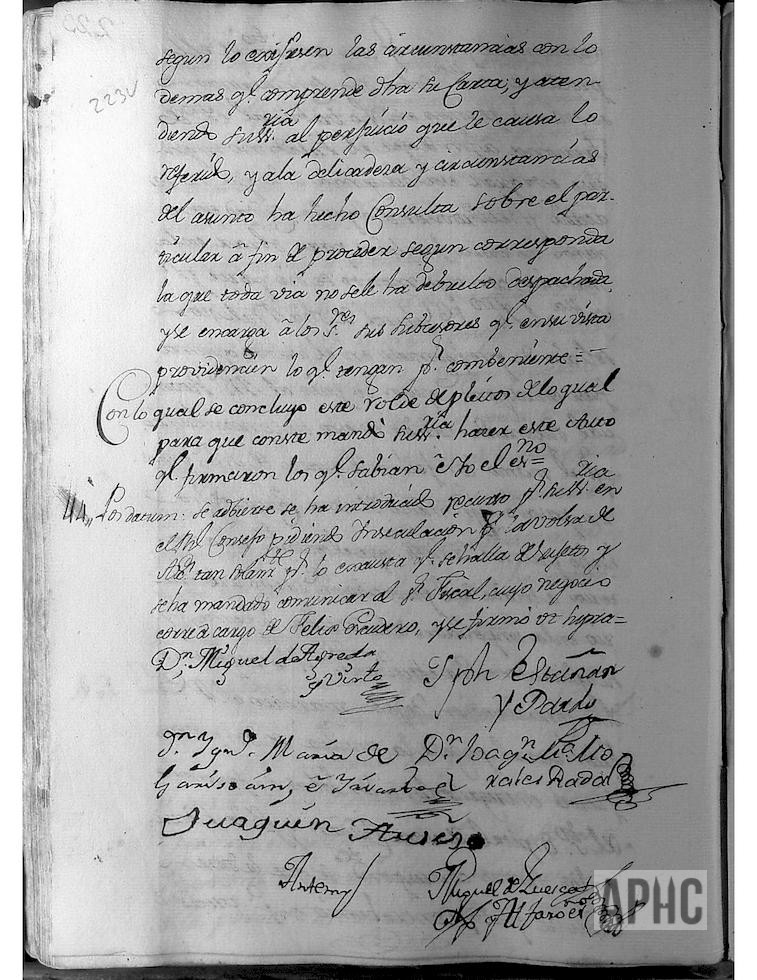 223v
segun lo exijiesen las circunstancias con lo
demas q.e comprende dha su Carta, y aten-
diendo su S.ria al perjuicio que le causa lo
referido, y ala delicadeza y circunstancias
del asunto ha hecho Consulta sobre el par-
ticular â fin de proceder segun corresponda
la que toda via no sele ha debuelto despachada,
y se encarga â los S.res sus subcesores q.e en su vista
providencien lo q.e tengan p.r combeniente =
Con lo qual se concluyo este rolde de pleitos de lo qual
para que conste mandò su S.ria hazer este Auto
q.e firmaron los q.e sabian è Yo el es.no =
44,, Posdatum: se adbierte se ha introducido recurso p.r su S.ria en
el Rl. Consejo pidiendo Insaculacion p.a la volsa de
tan solam.te p.r lo exausta q.e se halla de sujetos y
se ha mandado comunicar al S.r Fiscal, cuyo negocio
corre à cargo de Felix Escudero, y se firmò ut supra =
D.n Miguel de Agreda
y Virto
Jph Estañan
y Pardo
D.n Ygn.o Maria de
D.n Joaq.n
Rada
Juaquin
Antemi
Miguel de Huesca
y Alfaro es.no
APHC